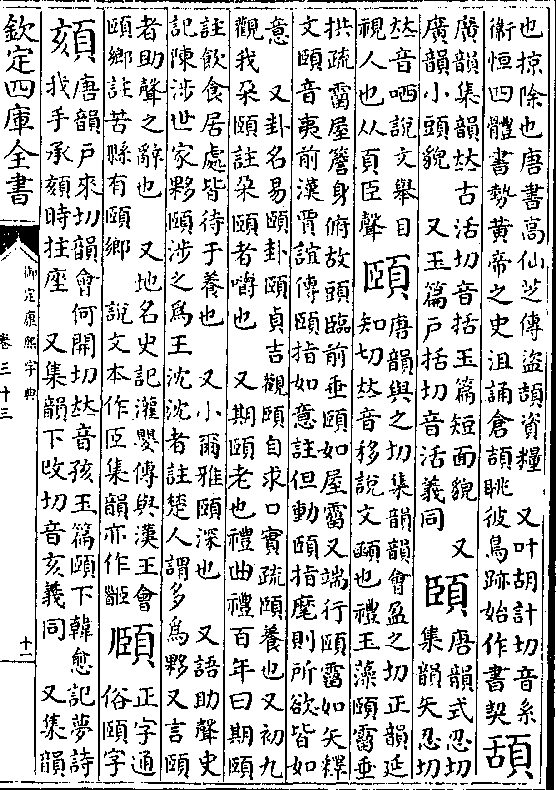 也掠除也唐書高仙芝傳盜頡資糧　又叶胡計切音系
衞恒四體書勢黃帝之史沮誦倉頡眺彼鳥跡始作書契
頢
廣韻集韻𠀤古活切音括玉篇短面貌　又
廣韻小頭貌　又玉篇戶括切音活義同
頣
唐韻式忍切
集韻矢忍切
𠀤音哂說文舉目
視人也从頁臣聲
頤
唐韻與之切集韻韻會盈之切正韻延
知切𠀤音移說文顄也禮玉藻頤霤垂
拱疏霤屋簷身俯故頭臨前垂頤如屋霤又端行頤霤如矢釋
文頤音夷前漢賈誼傳頤指如意註但動頤指麾則所欲皆如
意　又卦名易頤卦頤貞吉觀頤自求口實疏頤養也又初九
觀我朵頤註朵頤者嚼也　又期頤老也禮曲禮百年曰期頤
註飲食居處皆待于養也　又小爾雅頤深也　又語助聲史
記陳涉世家夥頤涉之爲王沈沈者註楚人謂多爲夥又言頤
者助聲之辭也　又地名史記灌嬰傳與漢王會
頤鄉註苦縣有頤鄉　說文本作𦣞集韻亦作𪘲
頥
正字通
俗頤字
頦
唐韻戶來切韻會何開切𠀤音孩玉篇頤下韓愈記夢詩
我手承頦時拄座　又集韻下改切音亥義同　又集韻
欽定四庫全書
御定康熙字典
卷三十三
十一